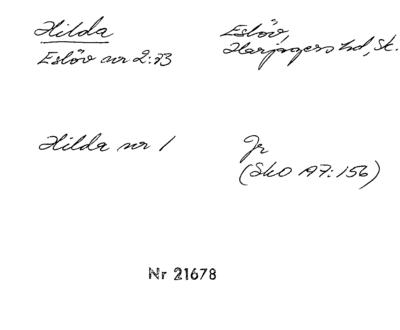 Hilda
Eslöv nr 2:73
Eslöv,
Harjagers hd, Sk.
Hilda nr 1
Jr
(SkO A7:156)
Nr 21678